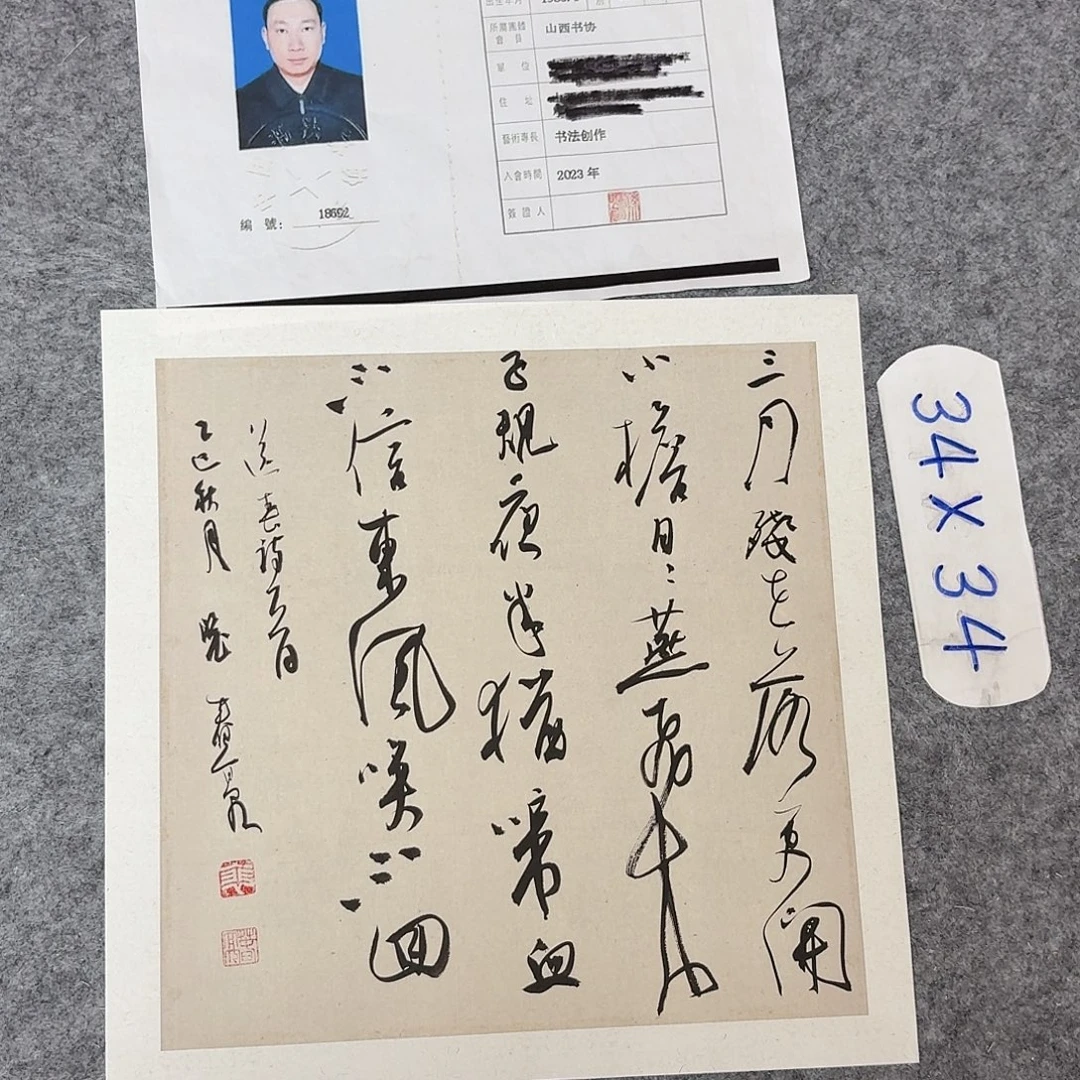 出生年月
所屬團體
會員
山西书协
單位
住址
藝術專長 书法创作
入會時間 2023年
簽證人
編號:
三月殘花落更開
小檐日日燕飛來
子規夜半猶啼血
不信東風喚不回
送春詩一首
乙巳秋月
34×34